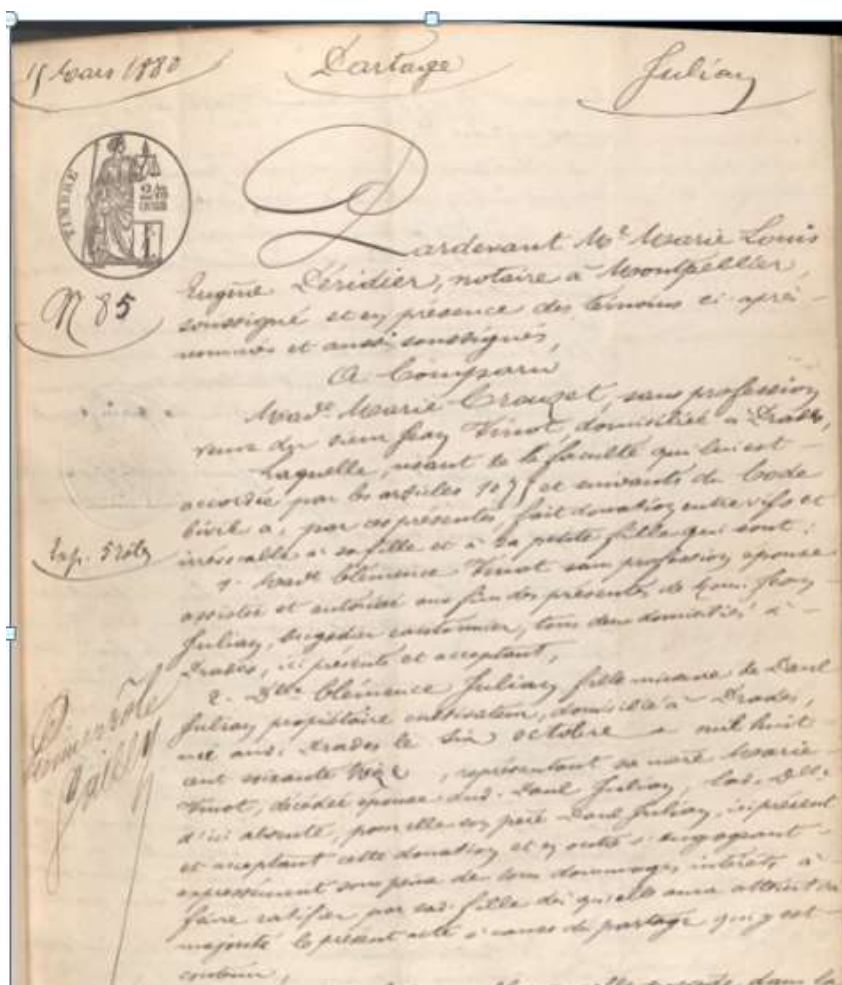 15 Mars 1880
Partage
Julian
TIMBRE
N 85
Pardevant Me Marie Louis
Eugène Péridier, notaire à Montpellier,
soussigné et en présence des témoins ci après
nommés et aussi soussignés,
A Comparu
Made Marie Crouzet, sans profession
veuve du sieur Jean Vinot, domiciliée à Prades,
Laquelle, usant de la faculté qui lui est
accordée par les articles 1075 et suivants du Code
Civil a, par ces présentes, fait donation entre vifs et
irrévocable à sa fille et à sa petite fille qui sont :
Exp. 5 rôles
1. Made Clémence Vinot sans profession épouse
assistée et autorisée aux fins des présentes de Jean
Julian, brigadier cantonnier, tous deux domiciliés à
Prades, ici présents et acceptant,
2. Dlle Clémence Julian fille mineure de Paul
Julian propriétaire cultivateur, domiciliée à Prades,
née aud. Prades le six octobre mil huit
cent soixante, représentant sa mère Marie
Vinot, décédée épouse dud. Paul Julian, lad. Dlle
d'ici absente, pour elle son père Paul Julian, ici présent
et acceptant cette donation et en outre s'engageant
expressément sous peine de tous dommages intérêts à
faire ratifier par sad. fille dès qu'elle aura atteint sa
majorité le présent acte à cause du partage qui y est
contenu,
Premier rôle
dans la